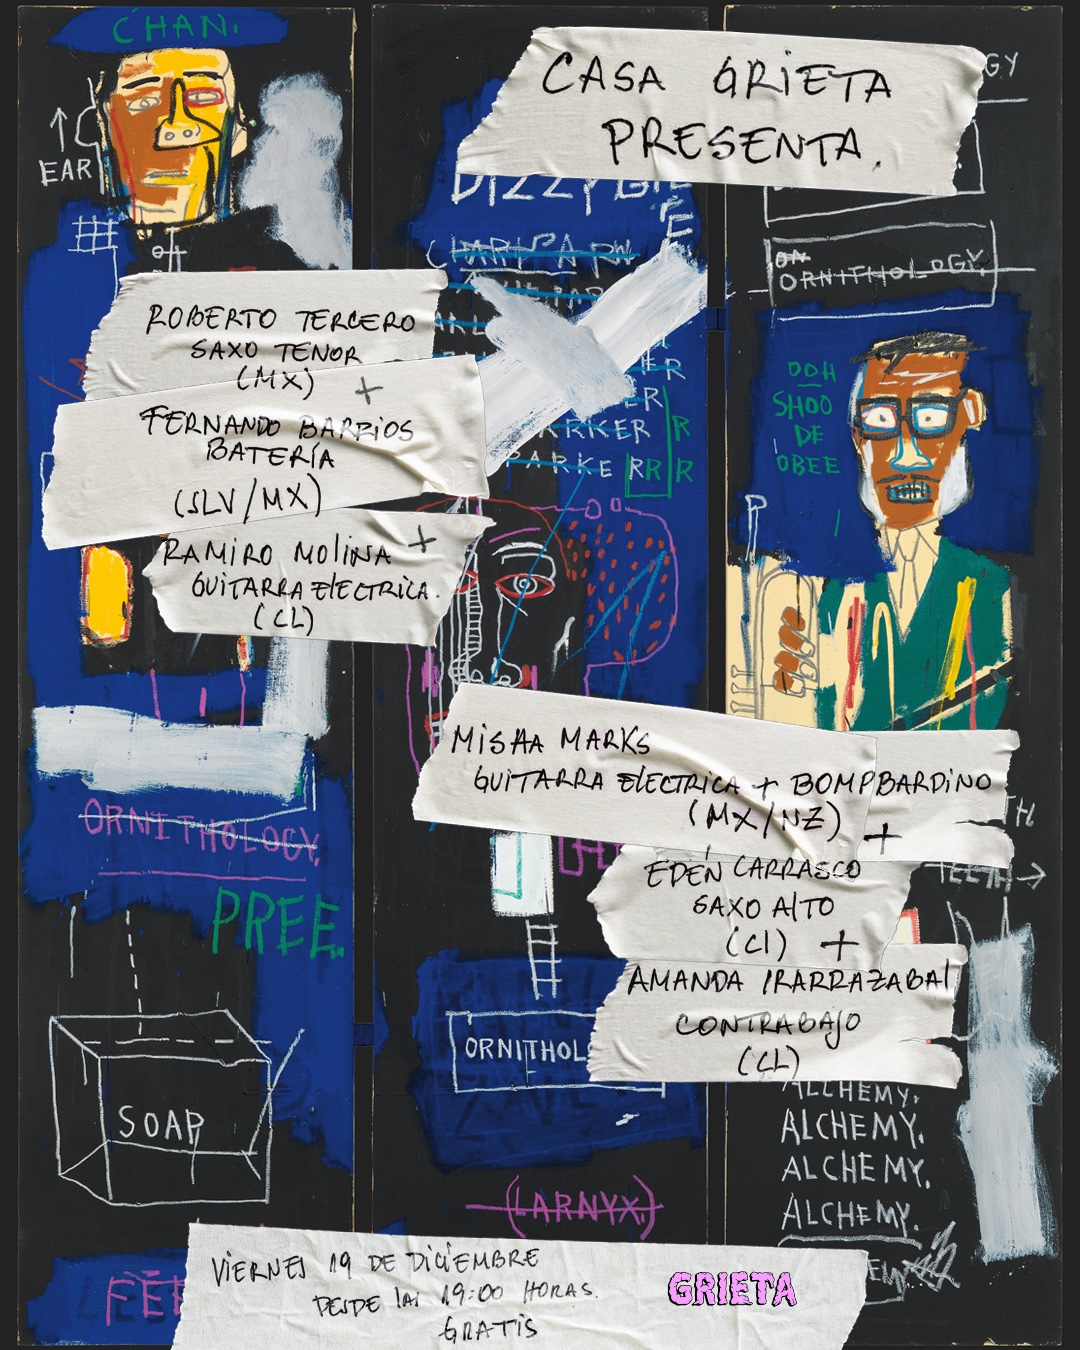 CASA GRIETA
PRESENTA.
CHAN.
EAR
DIZZY
ORNITHOLOGY.
ROBERTO TERCERO
SAXO TENOR
(MX) +
FERNANDO BARRIOS
BATERÍA
(SLV/MX)
+
RAMIRO MOLINA
GUITARRA ELECTRICA.
(CL)
PARKER
DOH
SHOO
DE
OBEE
MISHA MARKS
GUITARRA ELECTRICA + BOMPBARDINO
(MX/NZ) +
EDÉN CARRASCO
SAXO ALTO
(Cl) +
AMANDA IRARRAZABAL
CONTRABAJO
(CL)
ORNITHOLOGY.
PREE.
TEETH
SOAP
ORNITHOL
ALCHEMY.
ALCHEMY.
ALCHEMY.
ALCHEMY.
(LARNYX.)
VIERNES 19 DE DICIEMBRE
DESDE LAS 19:00 HORAS.
GRATIS
GRIETA